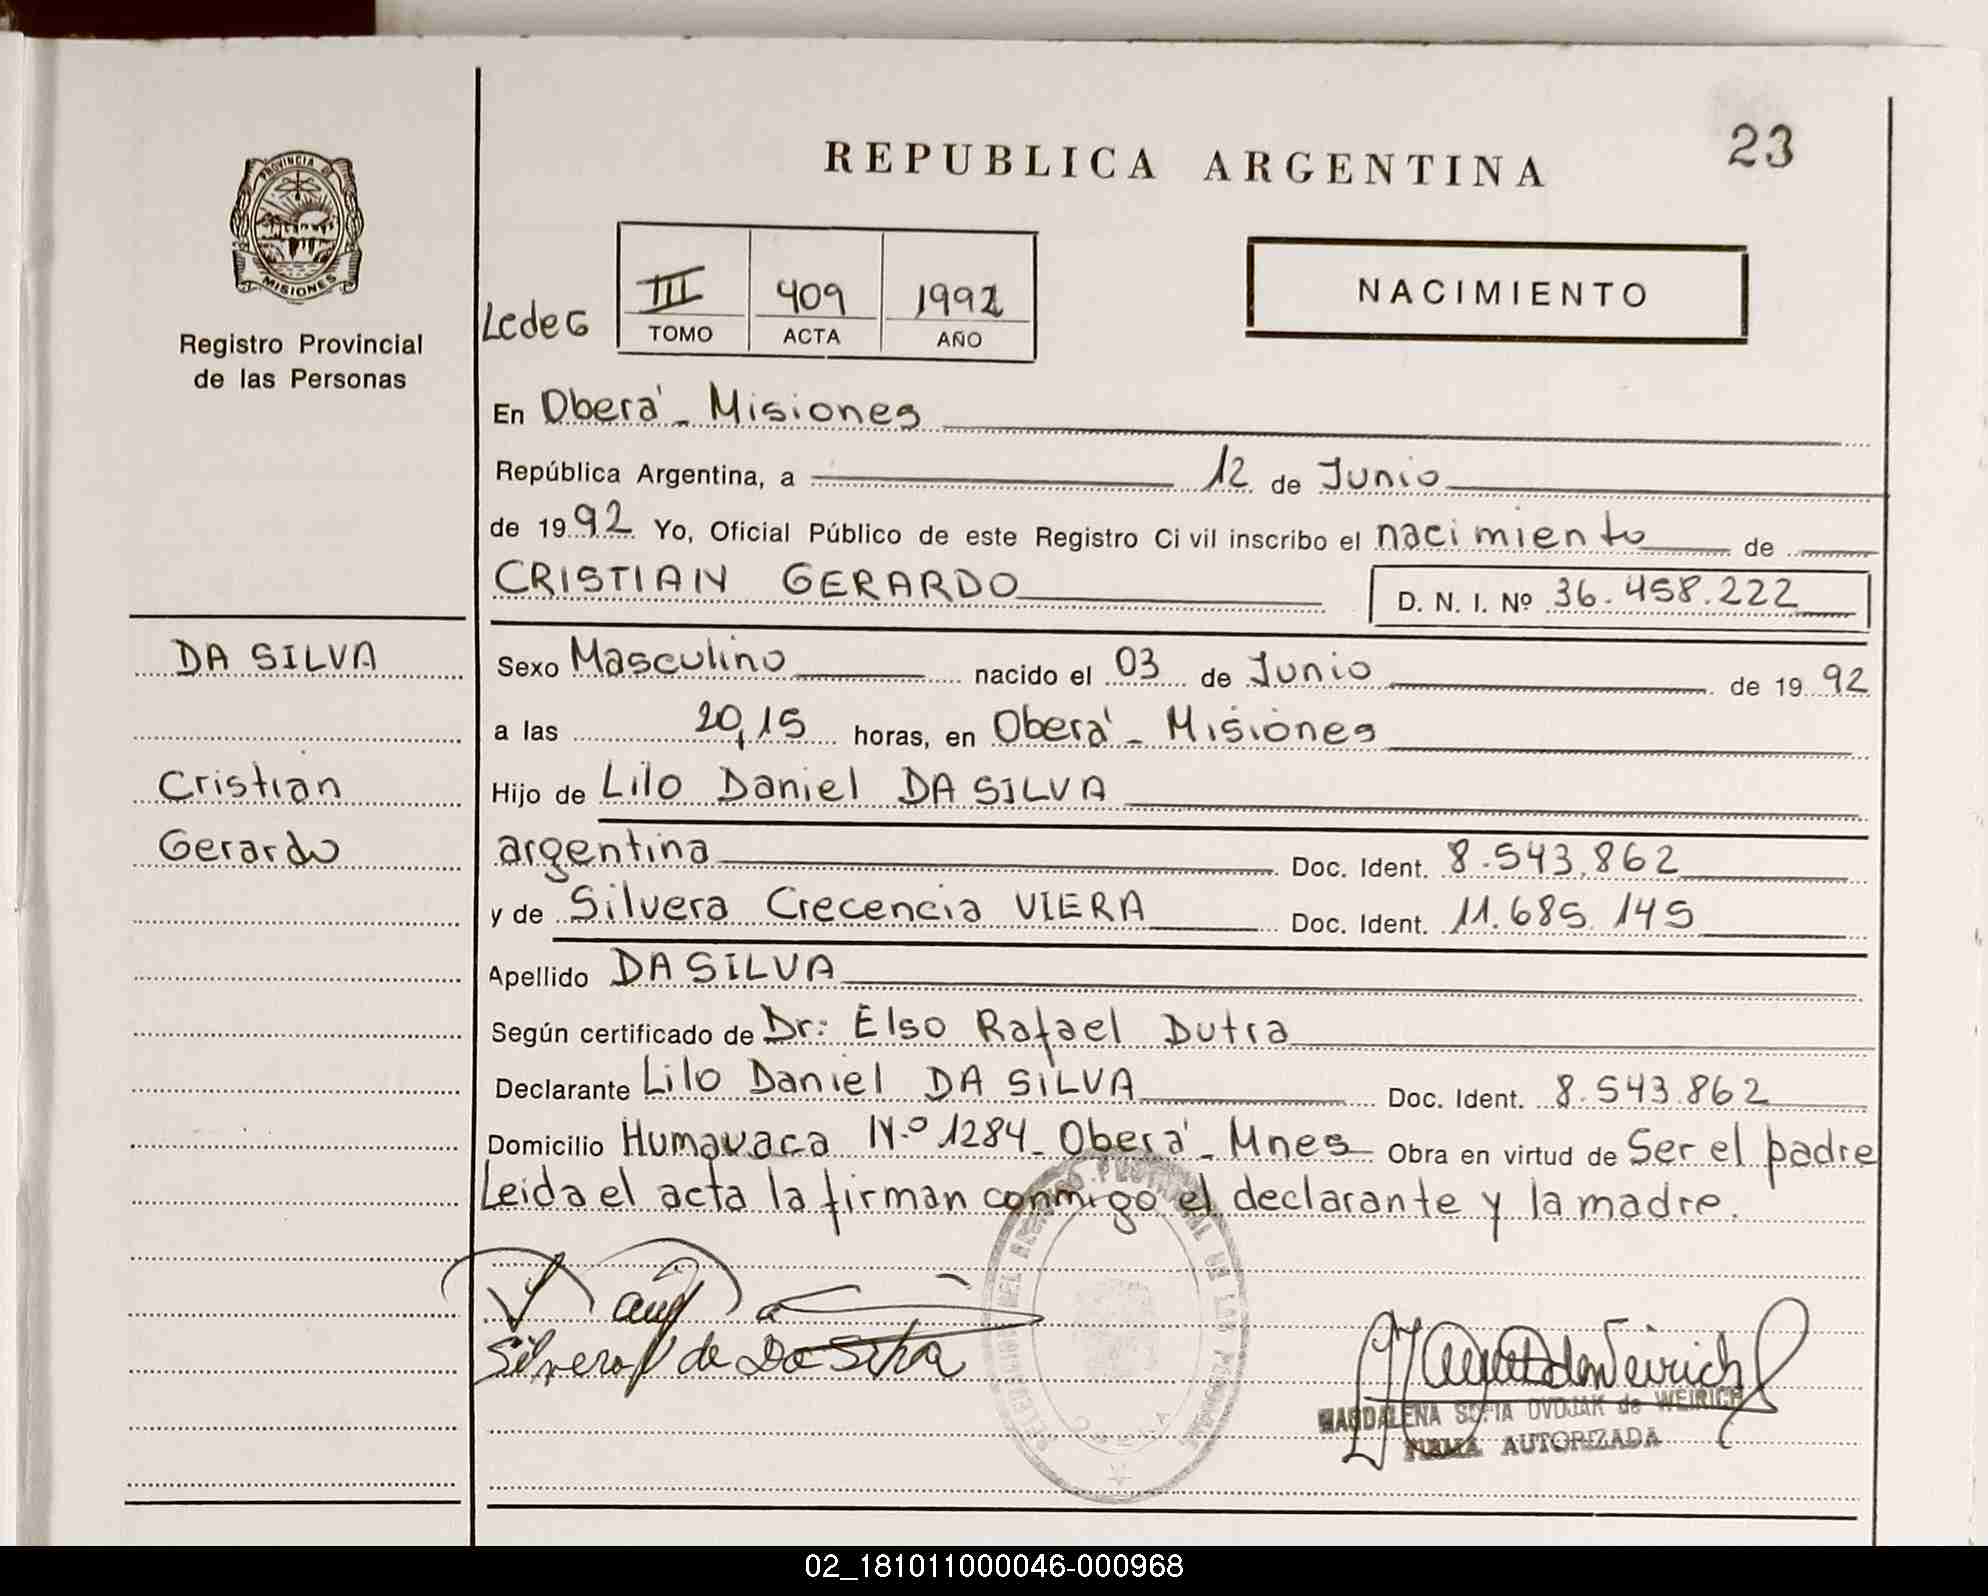 REPUBLICA ARGENTINA
23
PROVINCIA DE
MISIONES
Registro Provincial
de las Personas
III 409 1992
TOMO ACTA AÑO
NACIMIENTO
En Oberá - Misiones
República Argentina, a 12 de Junio
de 1992 Yo, Oficial Público de este Registro Ci vil inscribo el nacimiento de
CRISTIAN GERARDO D. N. I. Nº 36.458.222
DA SILVA
Cristian
Gerardo
Sexo Masculino nacido el 03 de Junio de 1992
a las 20,15 horas, en Oberá - Misiones
Hijo de Lilo Daniel DA SILVA
argentina Doc. Ident. 8.543.862
y de Silvera Crecencia VIERA Doc. Ident. 11.685.145
Apellido DA SILVA
Según certificado de Dr: Elso Rafael Dutra
Declarante Lilo Daniel DA SILVA Doc. Ident. 8.543.862
Domicilio Humauaca N.º 1284 - Oberá - Mnes Obra en virtud de Ser el padre
Leida el acta la firman conmigo el declarante y la madre.
Silvera V de Da Silva
MAGDALENA SOFIA OVDJAK de WEIRICH
FIRMA AUTORIZADA
02_181011000046-000968